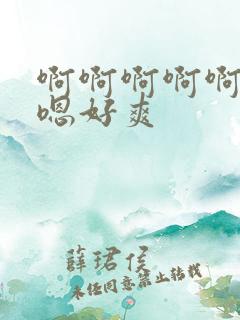 啊啊啊啊啊
嗯好爽
薛珺侯
未经同意禁止转载